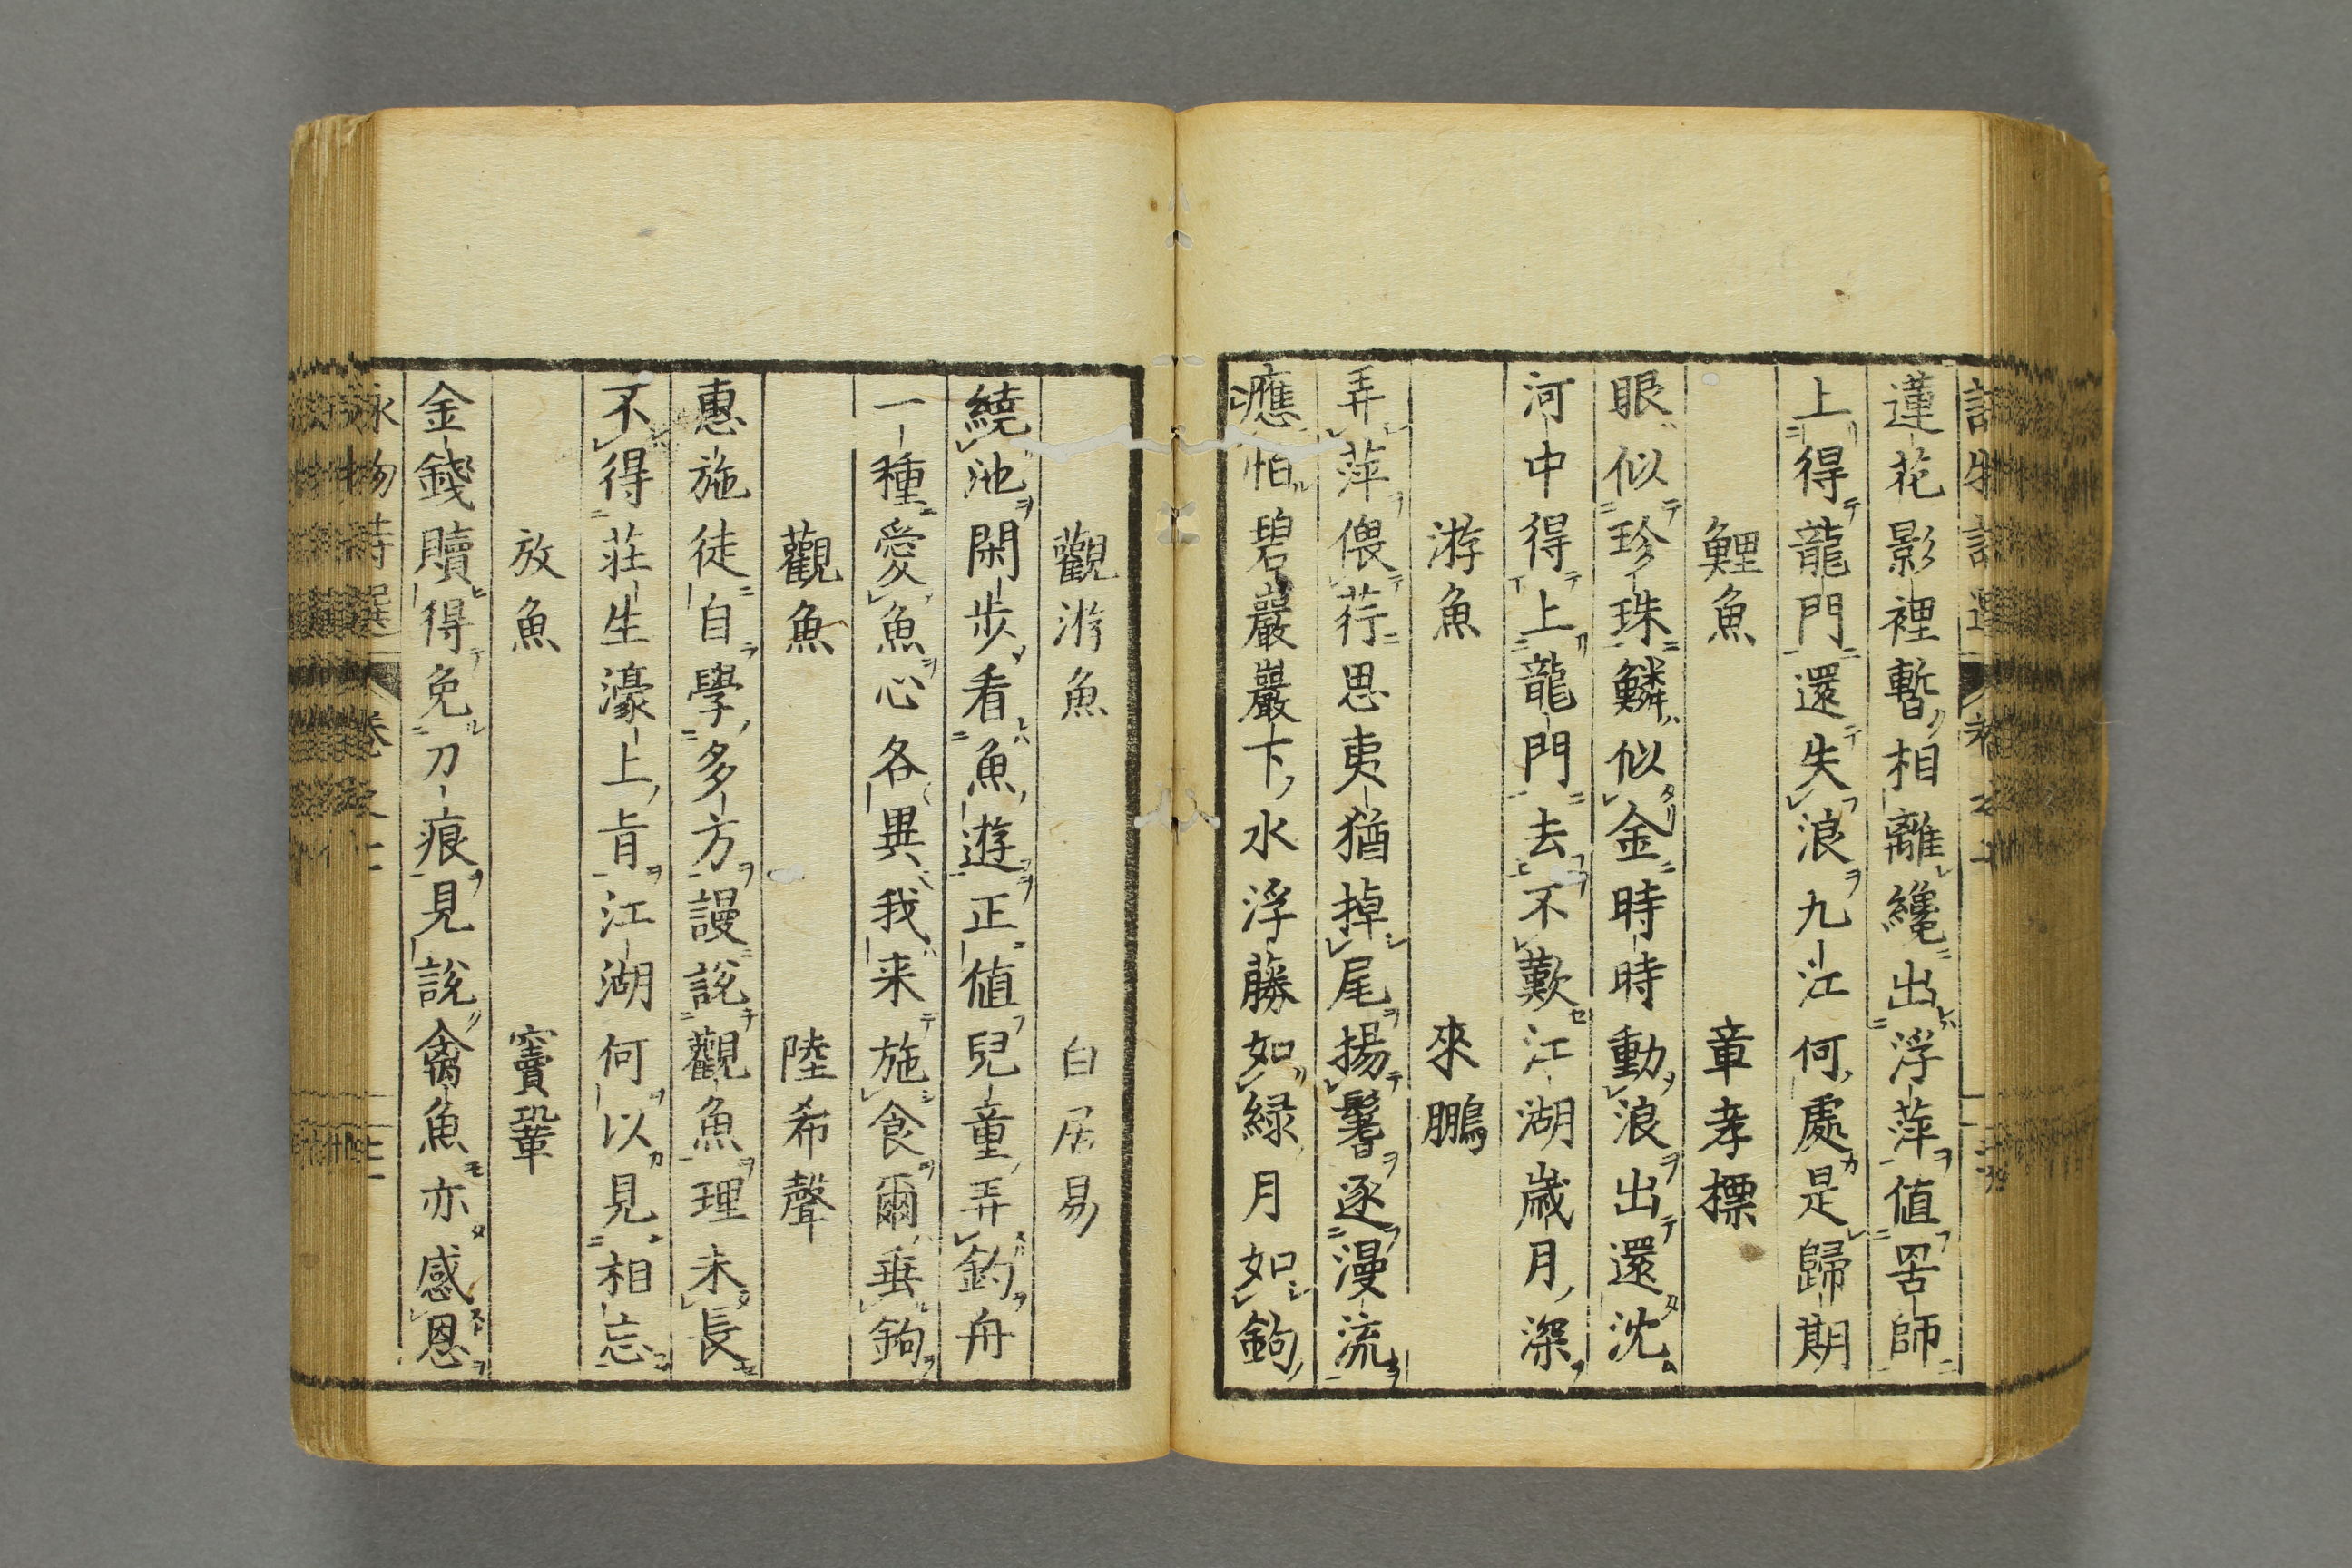 蓮花影裡暫相離纔出浮萍値罟師
上得龍門還失浪九江何處是歸期
鯉魚　章孝標
眼似珍珠鱗似金時時動浪出還沈
河中得上龍門去不歎江湖歳月深
游魚　來鵬
弄萍偎荇思夷猶掉尾揚鬐逐漫流
應怕碧巖巖下水浮藤如緑月如鉤
觀游魚　白居易
繞池閑步看魚遊正値兒童弄釣舟
一種愛魚心各異我来施食爾垂鉤
觀魚　陸希聲
惠施徒自學多方謾說觀魚理未長
不得莊生濠上肯江湖何以見相忘
放魚　竇鞏
金錢贖得免刀痕見說禽魚亦感恩